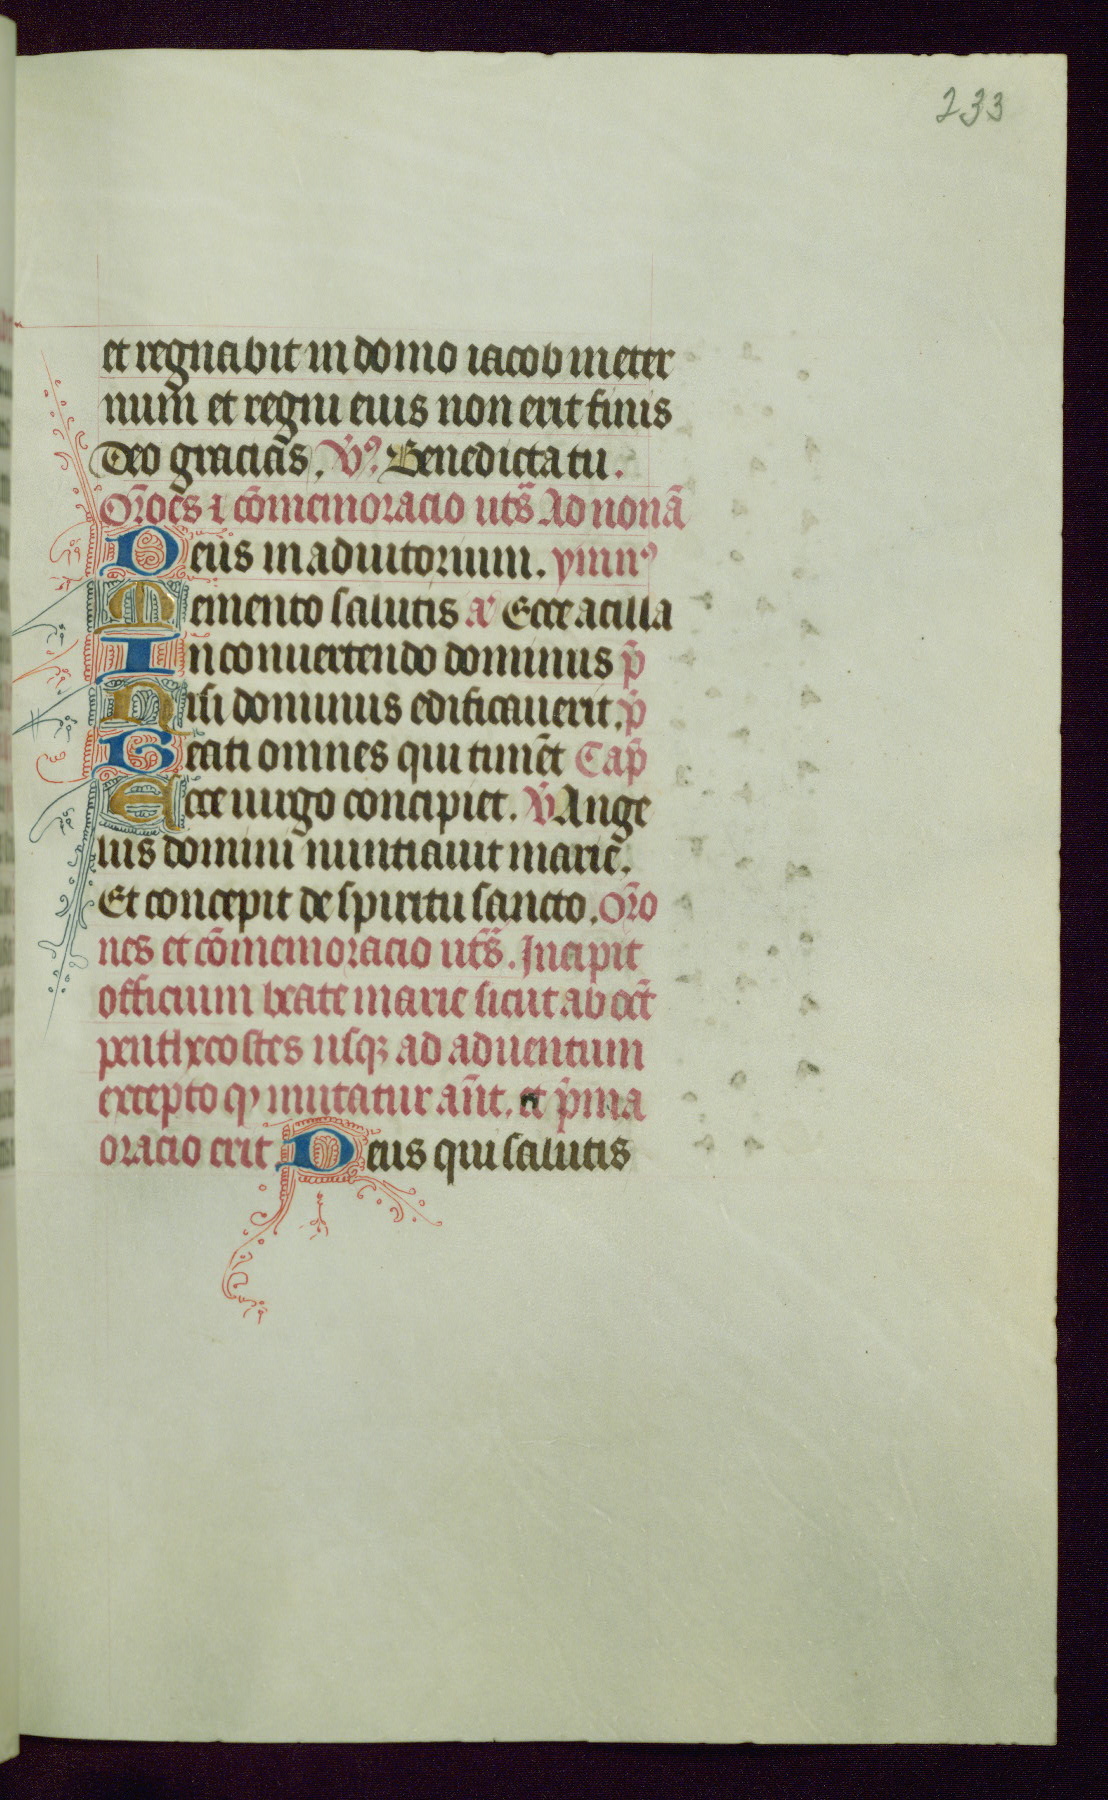 233
et regnabit in domo iacob in eter
num et regni eius non erit finis
Deo gracias. V᷒. Benedicta tu.
Or̄oēs ⁊ cōmemoracio uts̄ Ad nonā
Deus in adiutorium. ymn᷒
Memento salutis a᷒ Ecce acilla
In conuertendo dominus p̄
Nisi dominus edificauerit. p̄
Beati omnes qui timēt Cap̄
Ecce uirgo concipiet. V̄ Ange
lus domini nuntiauit marie.
Et concepit de spiritu sancto. Or̄o
nes et cōmemoracio uts̄. Incipit
officium beate marie sicut ab oct̄
penthecostes usqꝫ ad aduentum
excepto qꝫ mutatur an̄t. et p̄ma
oracio erit Deus qui salutis